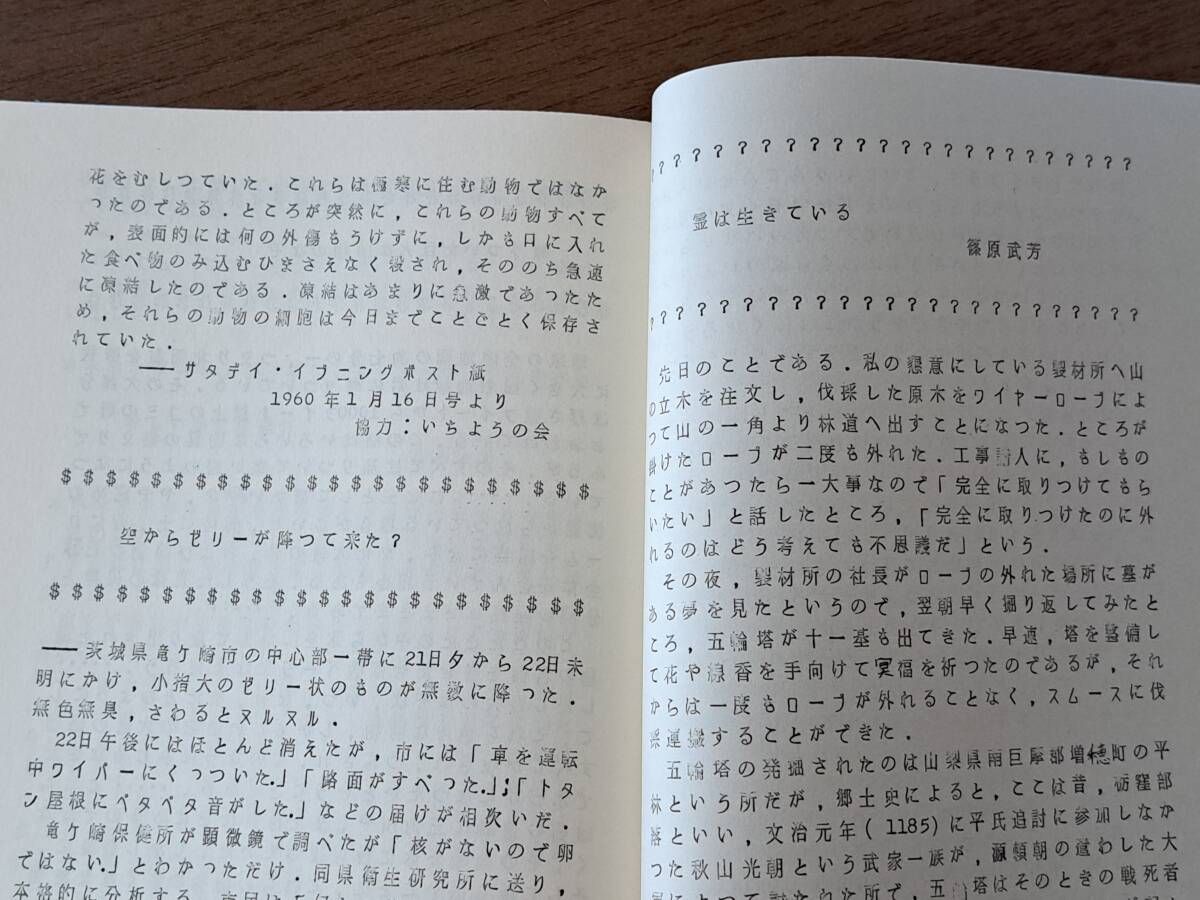 花をむしつていた．これらは極寒に住む動物ではなか
つたのである．ところが突然に，これらの動物すべて
が，表面的には何の外傷もうけずに，しかも口に入れ
た食べ物のみ込むひまさえなく殺され，そののち急速
に凍結したのである．凍結はあまりに急激であつたた
め，それらの動物の細胞は今日までことごとく保存さ
れていた．
──サタデイ・イブニングポスト紙
1960年1月16日号より
協力：いちようの会
$ $ $ $ $ $ $ $ $ $ $ $ $ $ $ $ $ $ $ $ $ $ $ $
空からゼリーが降つて来た？
$ $ $ $ $ $ $ $ $ $ $ $ $ $ $ $ $ $ $ $ $ $ $ $
──茨城県竜ケ崎市の中心部一帯に21日夕から22日未
明にかけ，小指大のゼリー状のものが無数に降つた．
無色無臭，さわるとヌルヌル．
22日午後にはほとんど消えたが，市には「車を運転
中ワイパーにくっついた．」「路面がすべつた．」；「トタ
ン屋根にペタペタ音がした．」などの届けが相次いだ．
竜ケ崎保健所が顕微鏡で調べたが「核がないので卵
ではない．」とわかつただけ．同県衛生研究所に送り，
本格的に分析する．
? ? ? ? ? ? ? ? ? ? ? ? ? ? ? ? ? ? ? ? ? ?
霊は生きている
篠原武芳
? ? ? ? ? ? ? ? ? ? ? ? ? ? ? ? ? ? ? ? ? ?
先日のことである．私の懇意にしている製材所へ山
の立木を注文し，伐採した原木をワイヤーロープによ
つて山の一角より林道へ出すことになつた．ところが
掛けたロープが二度も外れた．工事請人に，もしもの
ことがあつたら一大事なので「完全に取りつけてもら
いたい」と話したところ，「完全に取りつけたのに外
れるのはどう考えても不思議だ」という．
その夜，製材所の社長がロープの外れた場所に墓が
ある夢を見たというので，翌朝早く掘り返してみたと
ころ，五輪塔が十一基も出てきた．早速，塔を整備し
て花や線香を手向けて冥福を祈つたのであるが，それ
からは一度もロープが外れることなく，スムースに伐
採運搬することができた．
五輪塔の発掘されたのは山梨県南巨摩郡増穂町の平
林という所だが，郷土史によると，ここは昔，砺窪部
落といい，文治元年（1185）に平氏追討に参加しなか
つた秋山光朝という武家一族が，源頼朝の遣わした大
によつて討たれた所で，五塔はそのときの戦死者